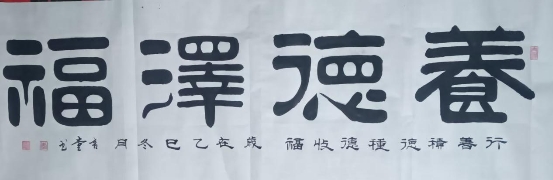 養德澤福
行善積德種德收福 歲在乙巳冬月